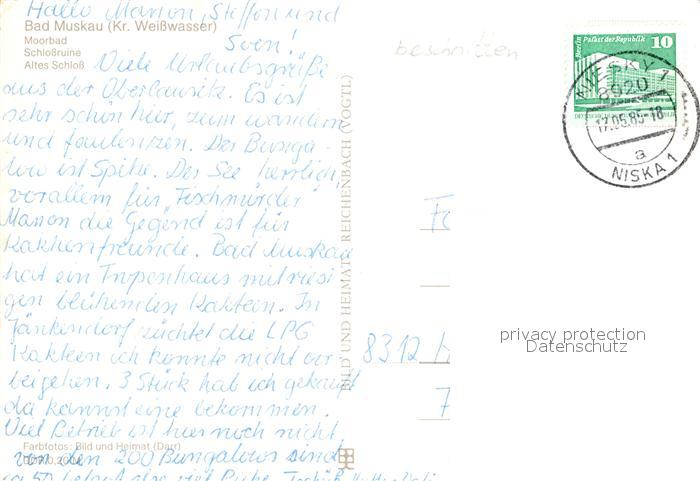 Hallo Manon, Steffen und
Sven!
Bad Muskau (Kr. Weißwasser)
Moorbad
Schloßruine
Altes Schloß
Viele Urlaubsgrüße
aus der Oberlausitz. Es ist
sehr schön hier, zum wandern
und faulenzen. Der Bunga-
low ist Spitze. Der See herrlich,
vorallem für "Fischmörder"
Manon die Gegend ist für
Kakteenfreunde. Bad Muskau
hat ein Tropenhaus mit riesi
gen blühenden Kakteen. In
Jänkendorf züchtet die LPG
Kakteen ich konnte nicht vor
beigehen. 3 Stück hab ich gekauft
da kannst eine bekommen.
Viel Betrieb ist hier noch nicht
von den 200 Bungalows sind
ca 50 belegt also viel Ruhe.
Farbfotos: Bild und Heimat (Darr)
BILD UND HEIMAT REICHENBACH (VOGTL)
beschnitten
Berlin Palast der Republik
10
NIESKY 1
8920
17.05.85-18
a
NISKA 1
8312
7
privacy protection
Datenschutz